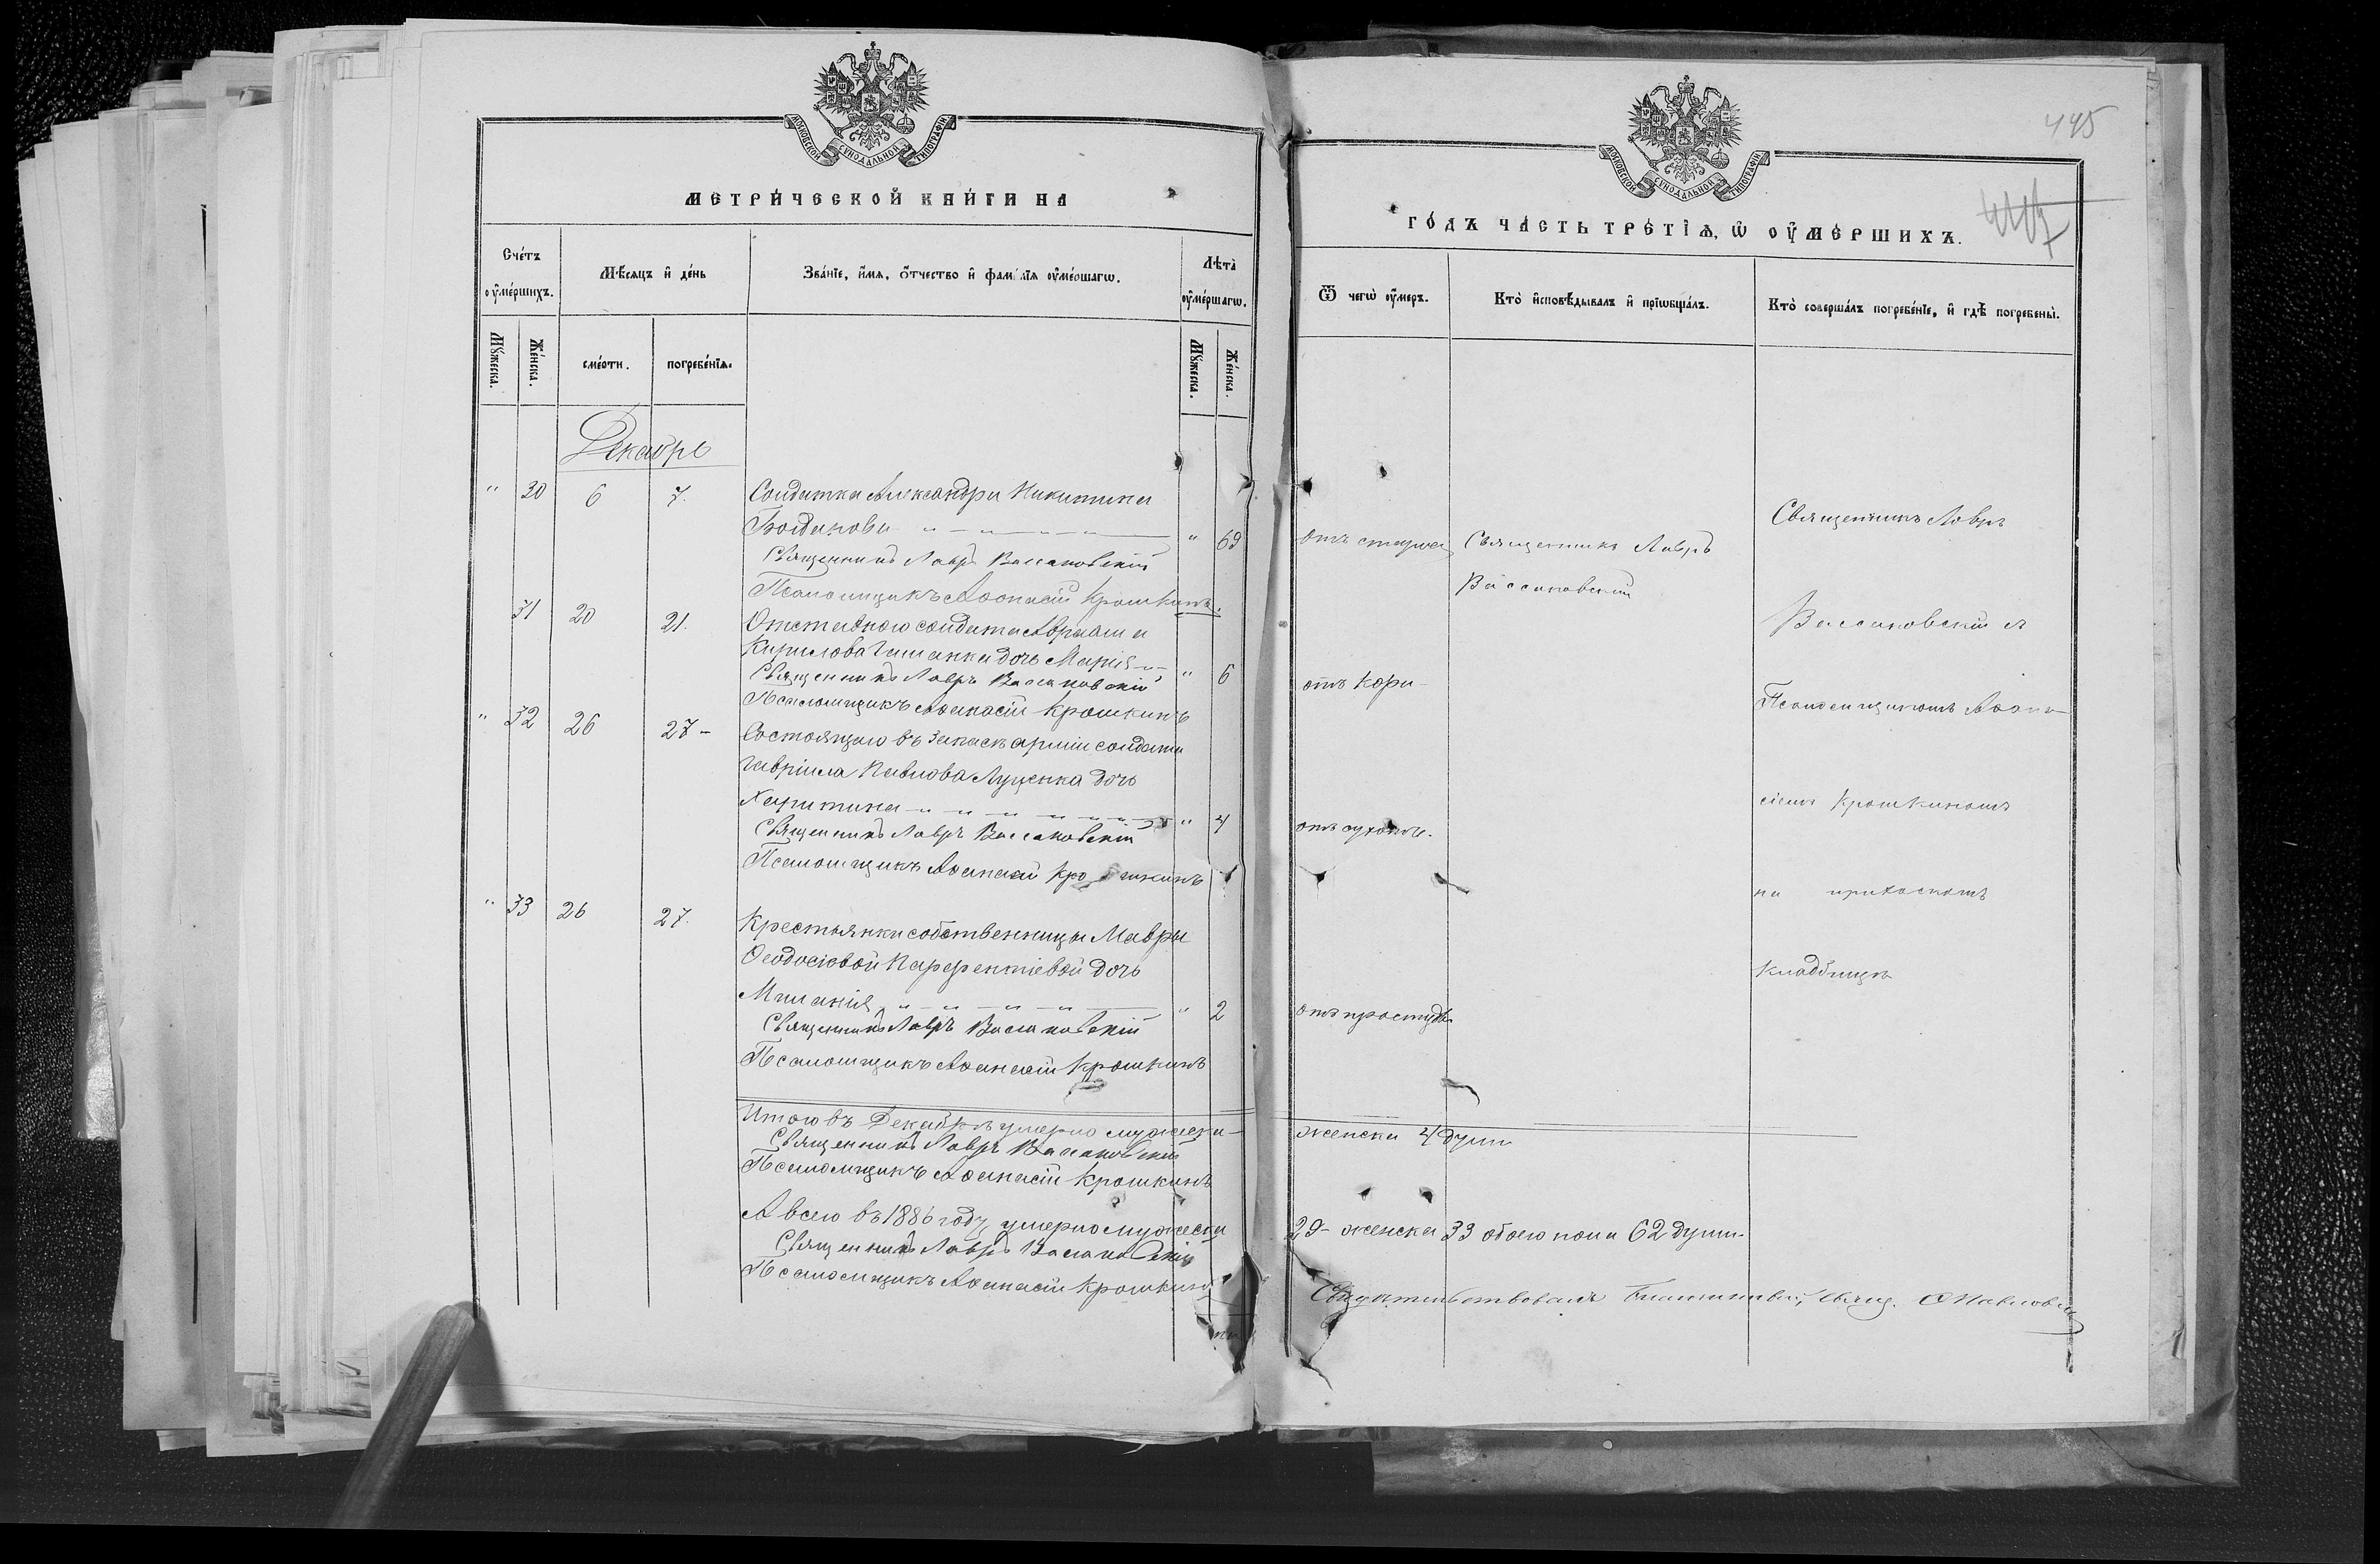 МОСКОВСКОЙ СѴНОДАЛЬНОЙ ТИПОГРАФІИ
МЕТРИ́ЧЕСКОЙ КНИ́ГИ НА
Сче́тъ оу҆ме́ршихъ.
Мѣ́сяцъ и҆ де́нь
Зва́нїе, и҆́мѧ, ѻ҆́тчество и҆ фамилїѧ оу҆ме́ршагѡ.
Лѣта̀ оу҆ме́ршагѡ.
Мꙋ́жеска.
Же́нска.
сме́рти.
погребе́нїѧ.
Мꙋ́жеска.
Же́нска.
Декабрь
" 30 6 7. Солдатка Александра Никитина
Богданова " 69
Священникъ Лавръ Вассаковскій
Псаломщикъ Аѳанасій Крошкинъ.
31 20 21. Отставного солдата Авраама
Кирилова дочь Марія " 6
Священникъ Лавръ Вассаковскій
Псаломщикъ Аѳанасій Крошкинъ
" 32 26 27 - Состоящаго въ запасѣ арміи солдата
Гавріила Павлова Луценка дочь
Харитина " 4
Священникъ Лавръ Вассаковскій
Псаломщикъ Аѳанасій Крошкинъ
" 33 26 27. Крестьянки собственницы Мавры
Ѳеодосіевой Парфентіевой дочь
Миланія " 2
Священникъ Лавръ Вассаковскій
Псаломщикъ Аѳанасій Крошкинъ
Итого въ Декабрѣ умерло мужеска -
Священникъ Лавръ Вассаковскій
Псаломщикъ Аѳанасій Крошкинъ
А всего въ 1886 году умерло мужеска
Священникъ Лавръ Вассаковскій
Псаломщикъ Аѳанасій Крошкинъ
445
МОСКОВСКОЙ СѴНОДАЛЬНОЙ ТИПОГРАФІИ
ГО́ДЪ ЧА́СТЬ ТРЕ́ТЇѦ, Ѡ҆ ОУ҆МЕ́РШИХЪ.
Ѿ чегѡ̀ оу҆́меръ.
Кто̀ и҆сповѣ́дывалъ и҆ прїѡбща́лъ.
Кто̀ соверша́лъ погребе́нїе, и҆ гдѣ̀ погребены̀.
отъ староc. Священникъ Лавръ
Вассаковскій
отъ кори -
отъ сухотъ.
отъ простуды
Священникъ Лавръ
Вассаковскій съ
Псаломщикомъ Аѳана-
сіемъ Крошкинымъ
на приходскомъ
кладбищѣ
женска 4 души
29 - женска 33 обоего пола 62 души.
Свидѣтельствовалъ Благочинный, Свящ. Павловскій